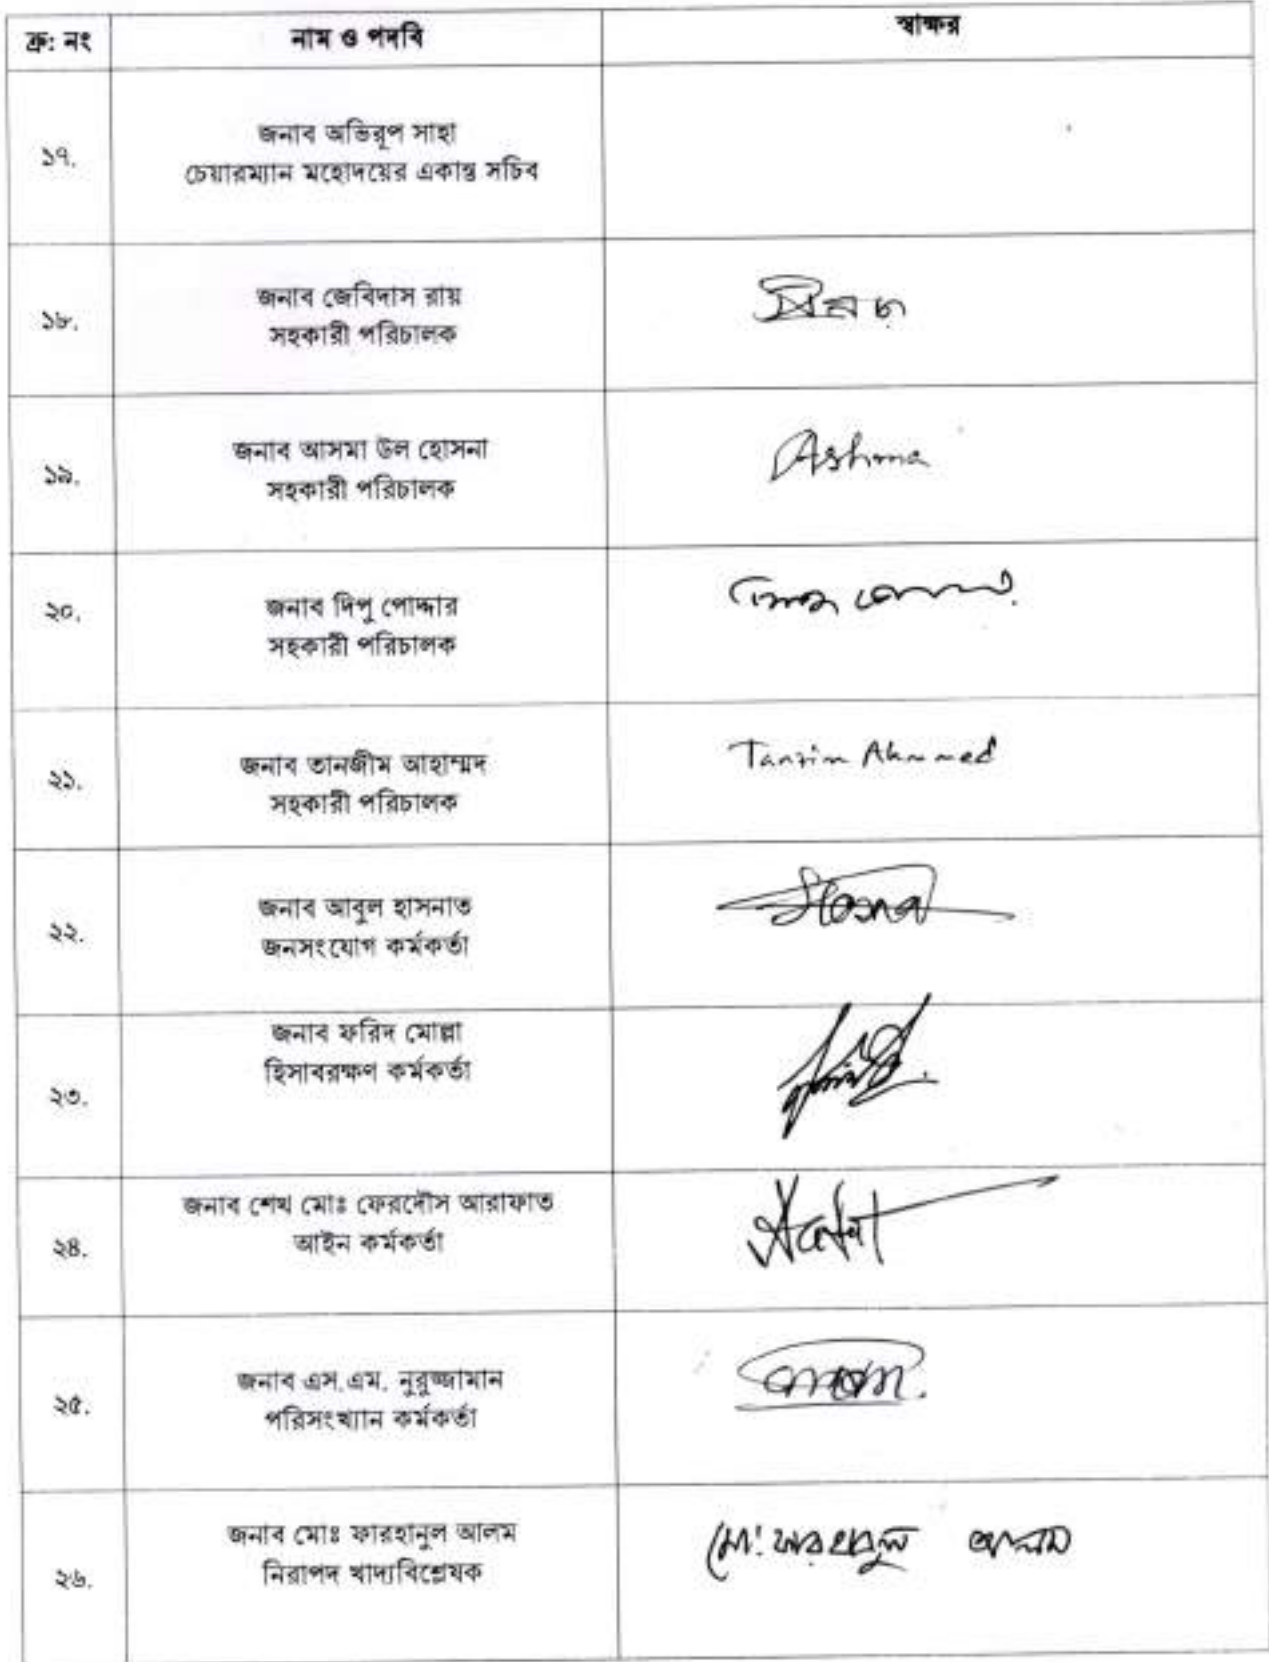 ক্র: নং
নাম ও পদবি
স্বাক্ষর
১৭.
জনাব অভিরূপ সাহা
চেয়ারম্যান মহোদয়ের একান্ত সচিব
১৮.
জনাব জেবিদাস রায়
সহকারী পরিচালক
১৯.
জনাব আসমা উল হোসনা
সহকারী পরিচালক
Ashma
২০.
জনাব দিপু পোদ্দার
সহকারী পরিচালক
২১.
জনাব তানজীম আহাম্মদ
সহকারী পরিচালক
Tanzim Ahmmed
২২.
জনাব আবুল হাসনাত
জনসংযোগ কর্মকর্তা
২৩.
জনাব ফরিদ মোল্লা
হিসাবরক্ষণ কর্মকর্তা
২৪.
জনাব শেখ মোঃ ফেরদৌস আরাফাত
আইন কর্মকর্তা
২৫.
জনাব এস.এম. নুরুজ্জামান
পরিসংখ্যান কর্মকর্তা
২৬.
জনাব মোঃ ফারহানুল আলম
নিরাপদ খাদ্যবিশ্লেষক
মো: ফারহানুল আলম